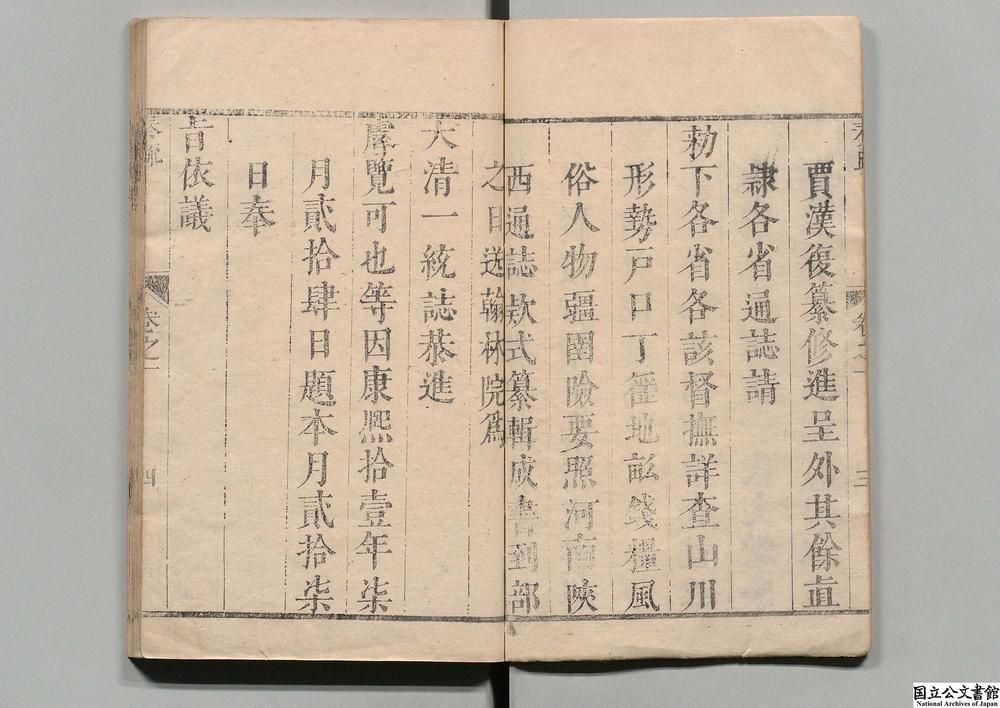 賈漢復纂修進呈外其餘直
隸各省通誌請
勑下各省各該督撫詳查山川
形勢戶口丁徭地畝錢糧風
俗人物疆圉險要照河南陝
西通誌欵式纂輯成書到部
之日送翰林院爲
大清一統誌恭進
睿覽可也等因康熙拾壹年柒
月貳拾肆日題本月貳拾柒
日奉
旨依議
卷之一
三
卷之一
四
国立公文書館
National Archives of Japan